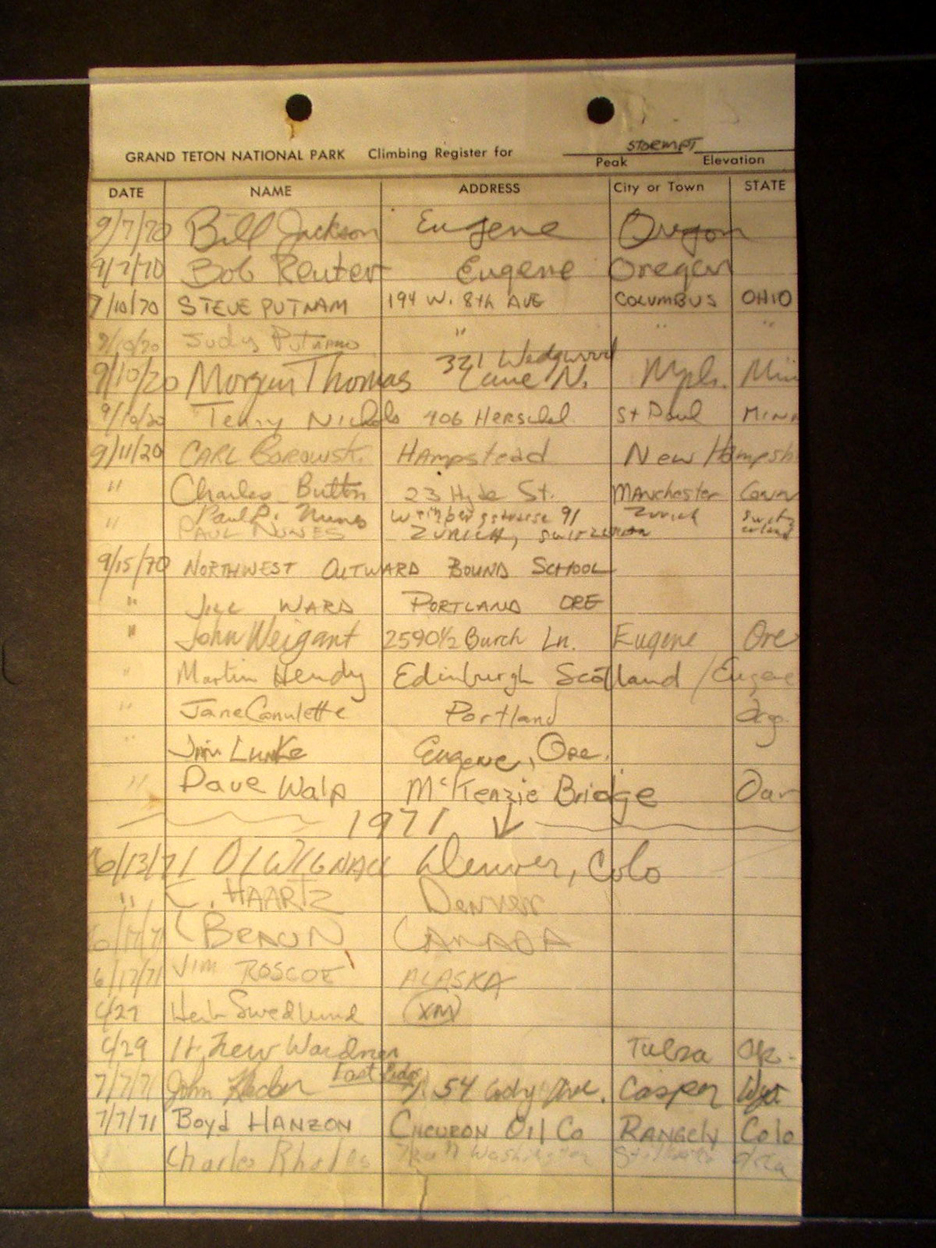 STORMPT
GRAND TETON NATIONAL PARK Climbing Register for
Peak Elevation
DATE NAME ADDRESS City or Town STATE
9/7/70 Bill Jackson Eugene Oregon
9/7/70 Bob Reuter Eugene Oregon
9/10/70 STEVE PUTNAM 194 W. 8th AVE COLUMBUS OHIO
9/10/70 Judy Putnam " " "
321 Wedgwood
9/10/70 Morgan Thomas Lane N. Mpls. Min
9/10/70 Terry Nichols 906 Herschel St Paul MINN
9/11/70 CARL BOROWSKI HAmpstead New Hampsh
" Charles Button 23 Hyde St. MANchester Conn
" Paul P. Nunes Weinbergstrasse 91 Zurich Switz
PAUL NUNES ZURICH, SWITZERLAND erland
9/15/70 NORTHWEST OUTWARD BOUND SCHOOL
" JILL WARD PORTLAND ORE
" John Weigant 2590½ Burch Ln. Eugene Ore
" Martin Hendy Edinburgh Scotland / Eugene
" Jane Portland
" Jim Eugene, Ore.
" Dave Walp McKenzie Bridge
1971 ↓
6/13/71 Denver, Colo
" C. HAARTZ Denver
BRAUN CANADA
6/17/71 JIM ROSCOE ALASKA
6/27 Herb Swedlund
6/29 Wardman Tulsa Ok.
East Ridge
7/7/71 John 54 Cody Ave. Casper Wyo
7/7/71 Boyd HANZON CHEVRON Oil Co RANGELY Colo
Charles Washington